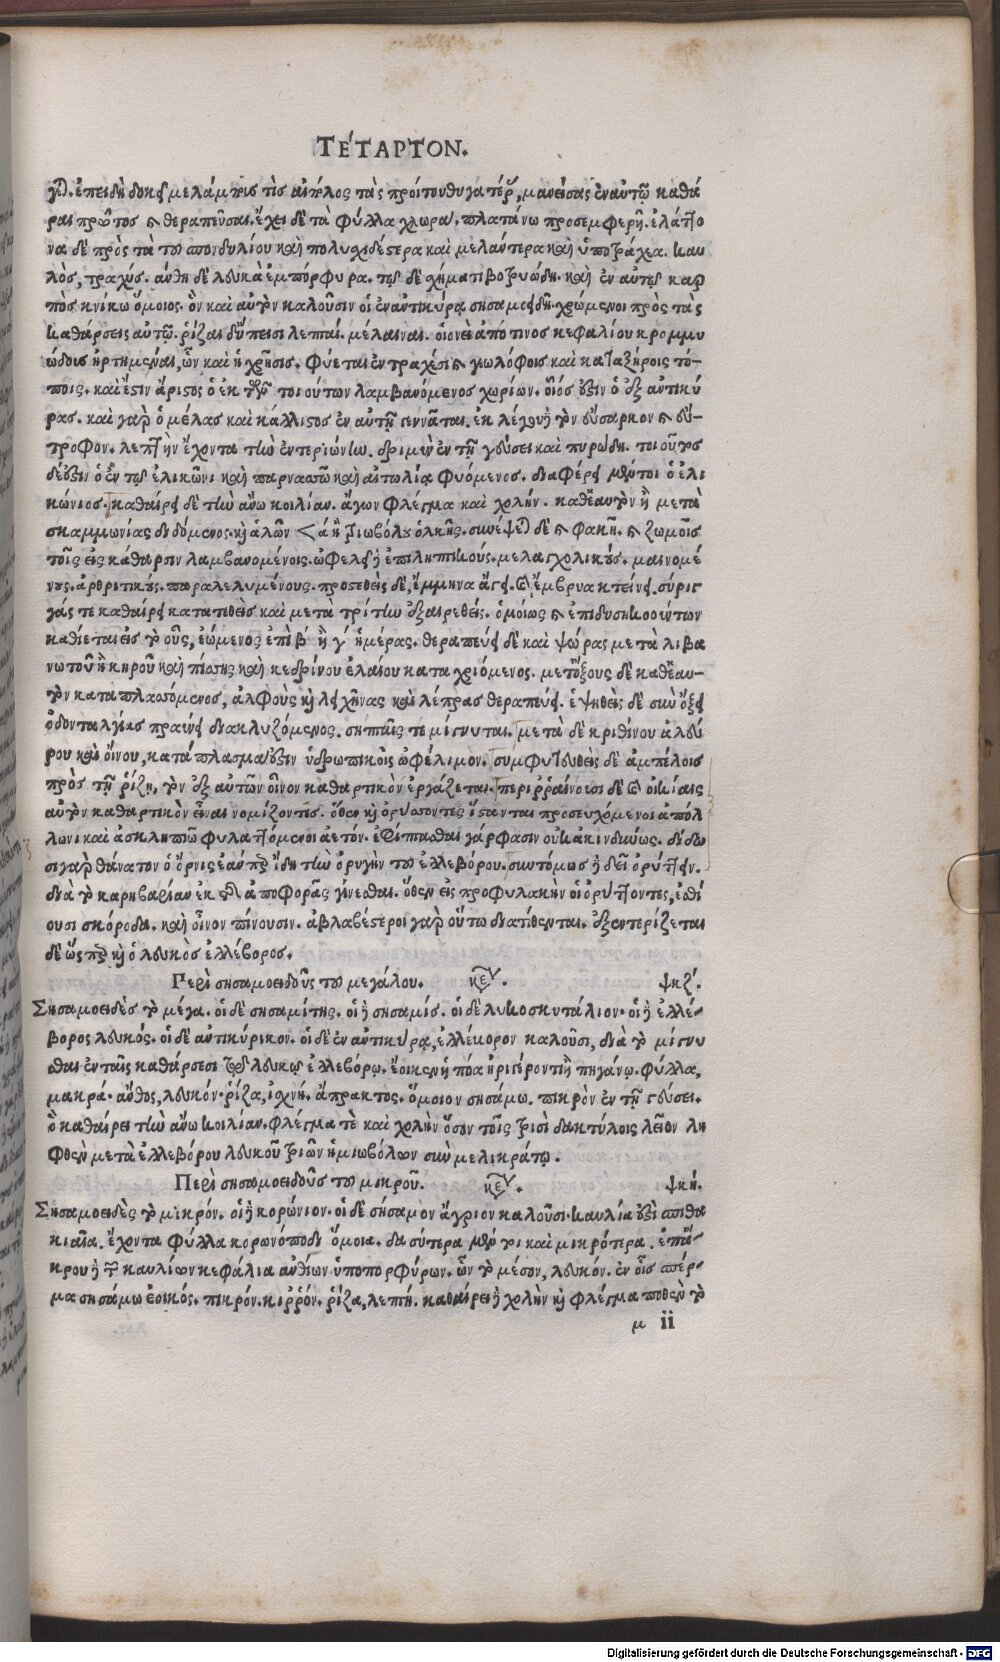 ΤΕΤΑΡΤΟΝ.
ἐπειδὴ δοκεῖ μελάμπους τὶς αἰπόλος τὰς προίτου θυγατέρας, μανείσας ἐν αὐτῷ καθᾶ
ραι πρῶτος καὶ θεραπεῦσαι. ἔχει δὲ τὰ φύλλα χλωρά. πλατάνω προσεμφερῆ. ἐλάττο
να δὲ πρὸς τὰ τοῦ σπονδυλίου καὶ πολυχιδέστερα καὶ μελάντερα καὶ ὑποτράχα. καυ
λὸς, τραχύς. ἄνθη δὲ λευκὰ ἐμπόρφυρα. τῷ δὲ χήματι βοτρυώδη. καὶ ἐν αὐτῷ καρ
πὸς κνίκω ὅμοιος. ὃν καὶ αὐτὸν καλοῦσιν οἱ ἐν ἀντικύρα σησαμοειδῆ. χρώμενοι πρὸς τὰς
καθάρσεις αὐτῷ. ῥίζαι δ' ὕπεισι λεπταί. μέλαιναι. οἱονεὶ ἀπό τινος κεφαλίου κρομμυ
ώδους ἠρτημέναι, ὧν καὶ ἡ χρῆσις. φύεται ἐν τραχέσι καὶ γωλόφοις καὶ καταξήροις τό-
ποις. καὶ ἔστιν ἄριστος ὁ ἐκ τῶν τοιούτων λαμβανόμενος χωρίων. οἷός ἐστιν ὁ ἐξ ἀντικύ
ρας. καὶ γὰρ ὁ μέλας καὶ κάλλιστος ἐν αὐτῇ γεννᾶται. ἐκλέγου δὲ τὸν εὔσαρκον καὶ εὔ-
τροφον. λεπτὴν ἔχοντα τὴν ἐντεριώνην. δριμὺν ἐν τῇ γεύσει καὶ πυρώδη. τοιοῦτος
δέ ἐστιν ὁ ἐν τῷ ἑλικῶνι καὶ παρνασῷ καὶ αἰτωλία φυόμενος. διαφέρει μέντοι ὁ ἑλι
κώνιος. καθαίρει δὲ τὴν ἄνω κοιλίαν. ἄγων φλέγμα καὶ χολήν. καθ' ἑαυτὸν ἢ μετὰ
σκαμμωνίας διδόμενος. καὶ ἁλῶν < ά ἢ τριωβόλου ὁλκῆς. συνέψεται δὲ καὶ φακῇ. καὶ ζωμοῖς
τοῖς εἰς κάθαρσιν λαμβανομένοις. ὠφελεῖ δὲ ἐπιληπτικούς. μελαγχολικούς. μαινομέ
νους. ἀρθριτικούς. παραλελυμένους. προστεθεὶς δὲ, ἔμμηνα ἄγει. καὶ ἔμβρυα κτείνει. σύριγ
γάς τε καθαίρει κατατιθεὶς καὶ μετὰ τρίτην ἐξαιρεθείς. ὁμοίως καὶ ἐπὶ δυσηκοούντων
καθίεται εἰς τὸ οὖς, ἐώμενος ἐπὶ β' ἢ γ' ἡμέρας. θεραπεύει δὲ καὶ ψώρας μετὰ λιβα
νωτοῦ ἢ κηροῦ καὶ πίσσης καὶ κεδρίνου ἐλαίου καταχριόμενος. μετ' ὄξους δὲ καθ' ἑαυ-
τὸν καταπλασσόμενος, ἀλφοὺς καὶ λειχῆνας καὶ λέπρας θεραπεύει. ἑψηθεὶς δὲ σὺν ὄξει
ὀδονταλγίας πραΰνει διακλυζόμενος. σηπταῖς τε μίγνυται. μετὰ δὲ κριθίνου ἀλεύ
ρου καὶ οἴνου, κατάπλασμά ἐστιν ὑδρωπικοῖς ὠφέλιμον. συμφυτευθεὶς δὲ ἀμπέλοις
πρὸς τῇ ῥίζῃ, τὸν ἐξ αὐτῶν οἶνον καθαρτικὸν ἐργάζεται. περιρραίνουσι δὲ καὶ οἰκίαις
αὐτὸν καθαρτικὸν εἶναι νομίζοντες. ὅθεν καὶ ὀρύσσοντες ἵστανται προσευχόμενοι ἀπόλ
λωνι καὶ ἀσκληπιῷ φυλαττόμενοι ἀετόν. ἐφίπτασθαι γάρ φασιν οὐκ ἀκινδύνως. δίδω
σι γὰρ θάνατον ὁ ὄρνις ἐάνπερ ἴδη τὴν ὀρυγὴν τοῦ ἐλλεβόρου. συντόμως δὲ δεῖ ὀρύττειν.
διὰ τὸ καρηβαρίαν ἐκ τῆς ἀποφορᾶς γίνεσθαι. ὅθεν εἰς προφυλακὴν οἱ ὀρύττοντες, ἐσθί
ουσι σκόροδα. καὶ οἶνον πίνουσιν. ἀβλαβέστεροι γὰρ οὕτω διατίθενται. ἐξεντερίζεται
δὲ ὥσπερ καὶ ὁ λευκὸς ἐλλέβορος.
Περὶ σησαμοειδοῦς τοῦ μεγάλου. κεφ. ψκζ'.
Σησαμοειδὲς τὸ μέγα. οἱ δὲ σησαμίτης. οἱ δὲ σησαμίς. οἱ δὲ λυκοσκυτάλιον. οἱ δὲ ἐλλέ-
βορος λευκός. οἱ δὲ ἀντικύρικον. οἱ δὲ ἐν ἀντικύρα, ἐλλέκορον καλοῦσι, διὰ τὸ μίγνυ
σθαι ἐν ταῖς καθάρσεσι τῷ λευκῷ ἐλλεβόρῳ. ἔοικεν ἡ πόα ἠριγέροντι ἢ πηγάνῳ. φύλλα,
μακρά. ἄνθος, λευκόν. ῥίζα, ἰσχνή. ἄπρακτος. ὅμοιον σησάμω. πικρὸν ἐν τῇ γεύσει.
ὃ καθαίρει τὴν ἄνω κοιλίαν. φλέγμα τὲ καὶ χολὴν ὅσον τοῖς τρισὶ δακτύλοις λεῖον λη
φθὲν μετὰ ἐλλεβόρου λευκοῦ τριῶν ἡμιωβόλων σὺν μελικράτῳ.
Περὶ σησαμοειδοῦς τοῦ μικροῦ. κεφ. ψκή.
Σησαμοειδὲς τὸ μικρόν. οἱ δὲ κορώνιον. οἱ δὲ σήσαμον ἄγριον καλοῦσι. καυλία ἐστὶ σπιθα
κιαῖα. ἔχοντα φύλλα κορωνόποδι ὅμοια. δασύτερα μέν τι καὶ μικρότερα. ἐπ' ἄ-
κρου δὲ τῶν καυλίων κεφάλια ἀνθίων ὑποπορφύρων. ὧν τὸ μέσον, λευκόν. ἐν οἷς σπέρ-
μα σησάμω ἐοικός. πικρόν. κιρρόν. ῥίζα, λεπτή. καθαίρει δὲ χολὴν καὶ φλέγμα ποθὲν τὸ
μ ii
Digitalisierung gefördert durch die Deutsche Forschungsgemeinschaft - DFG